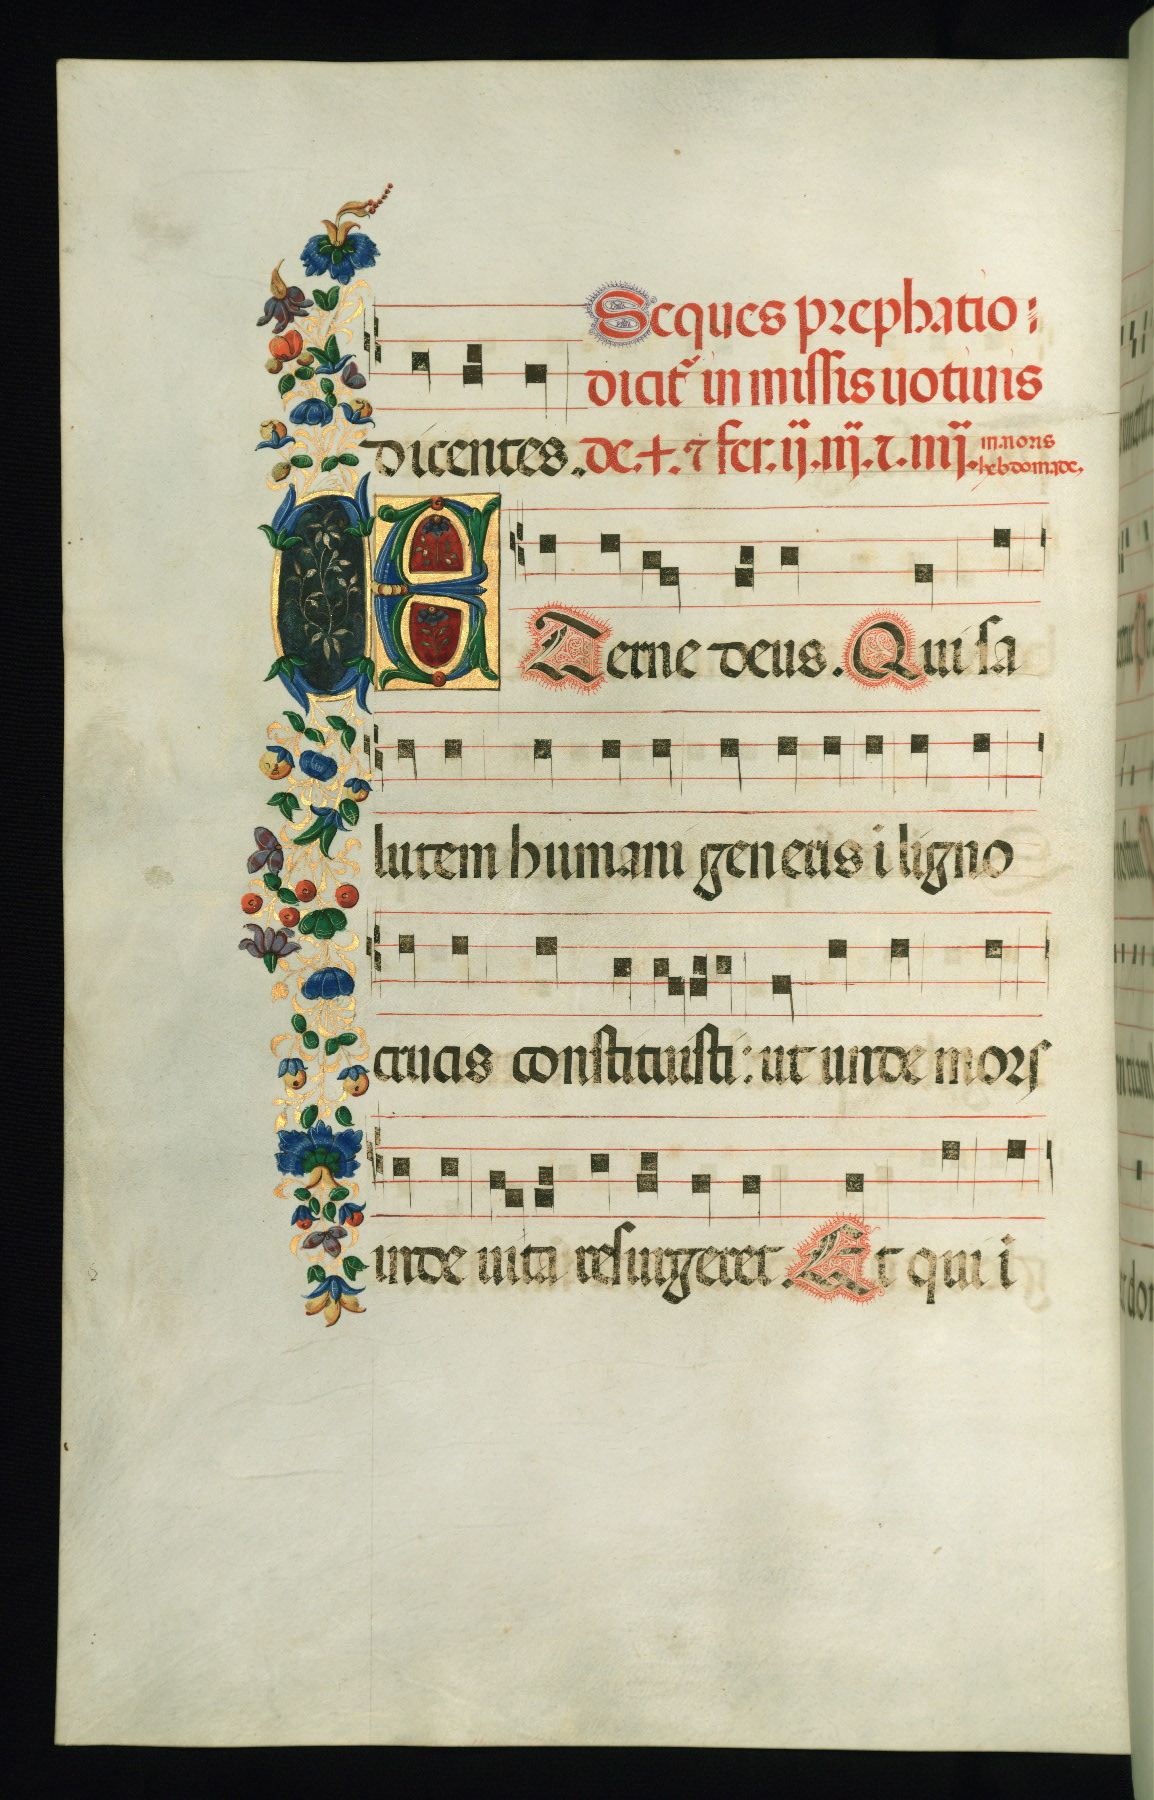 Seques prephatio:
dicit᷑ in missis uotiuis
dicentes. de. +. ⁊ fer. ij. iij. ⁊. iiij. in noris
hebdomade,
E Terne deus. Qui sa
lutem humani generis i ligno
crucis constituisti: ut unde mors
inde uita resurgeret. Et qui i